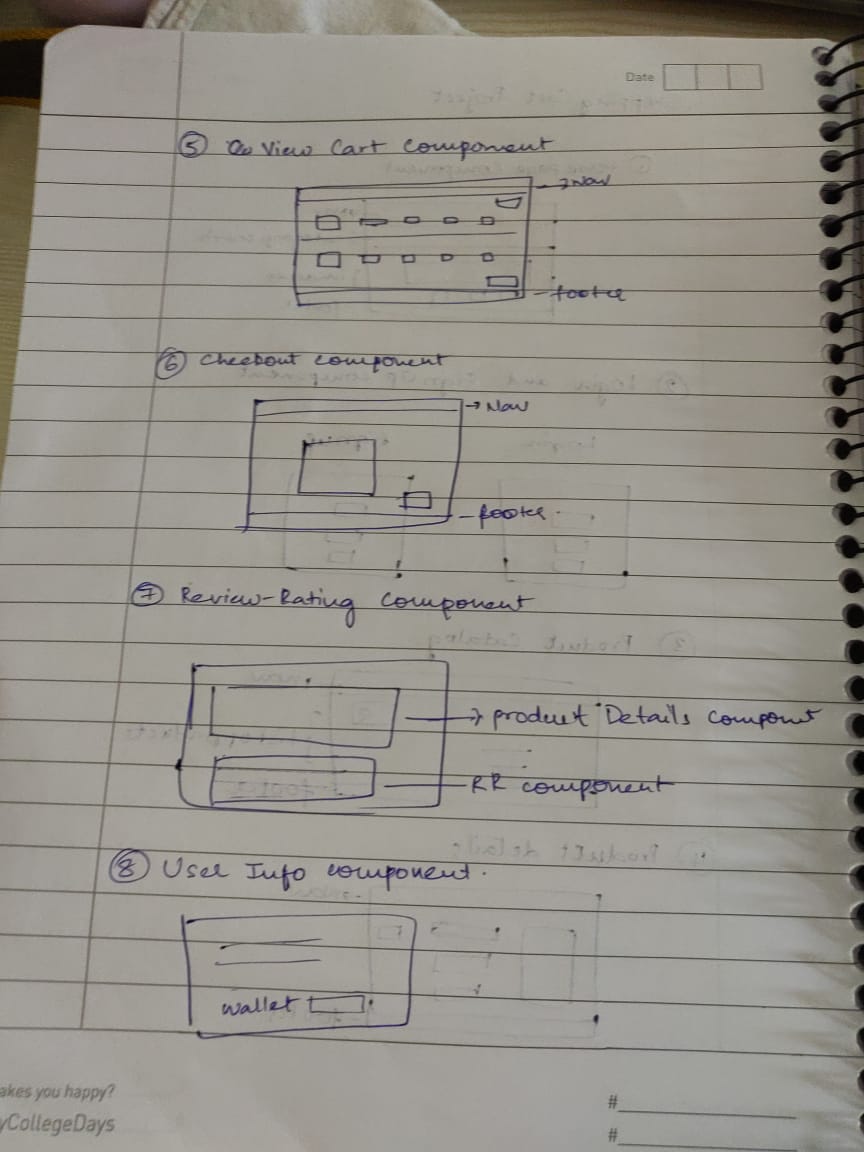 Date
⑤ View Cart Component
→ Nav
footer
⑥ Checkout component
→ Nav
footer
⑦ Review-Rating component
→ product Details componet
RR component
⑧ User Info component.
wallet
akes you happy?
yCollegeDays
#
#